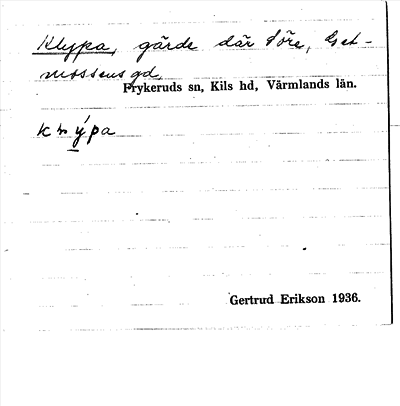 Klypa, gärde där Töre, Get-
mossens gd,
Frykeruds sn, Kils hd, Värmlands län.
Gertrud Erikson 1936.